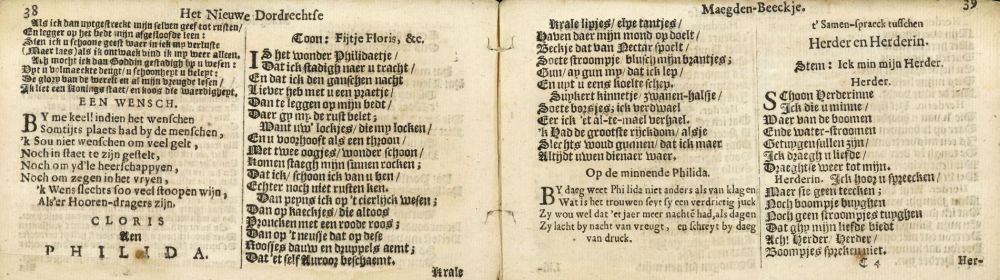 38
Het Nieuwe Dordrechtse
Als ick dan uytgestreckt mijn selven geef tot rusten/
En legger op het bedt mijn afgeslooofde leen:
Sien ick u schoone geest waer in ick my verluste
(Maer laes) als ick ontwaek bind ick my weer alleen.
Ach mocht ick dan Goddin gestadigh by u wesen:
Uyt u volmaeckte deugt/ u schoonheyt u belept:
De glory van de werelt en al mijn vreughd lesen/
Ick liet een Konings staet/ en koos die waerdigheyt.
EEN WENSCH.
BY me keel! indien het wenschen
Somtijts plaets had by de menschen,
'k Sou niet wenschen om veel gelt,
Noch in staet te zijn gestelt,
Noch om yd'le heerschappyen,
Noch om zegen in het vryen,
'k Wens slechts soo veel stoopen wijn,
Als'er Hooren-dragers zijn.
CLORIS
Aen
PHILIDA.
Toon: Fijtje Floris, &c.
IS het wonder Philidaetje/
Dat ick stadigh naer u tracht/
En dat ick den ganschen nacht
Liever heb met u een praetje/
Dan te leggen op mijn bedt/
Daer gy my de rust belet;
Want uw' lockjes/ die my locken/
En u voorhooft als een throon/
Met twee oogjes/ wonder schoon/
Komen staegh mijn sinnen rocken;
Dat ick/ schoon ick van u hen/
Echter noch niet rusten ken.
Dan peyns ick op 't cierlijck wesen;
Dan op kaeckjes/ die altoos
Proncken met een roode roos;
Dan op 't neusje dat op dese
Roosjes dauw en druppels aemt;
Dat 'et self Auroor beschaemt.
Krale
Maegden-Beeckje.
39
Krale lipjes/ elpe tantjes/
Haven daer mijn mond op doelt/
Beckje dat van Nectár spoelt/
Soete stroompje/ blusch mijn brantjes;
Gun/ ay gun my/ dat ick lep/
En uyt u eens koelte schep.
Suykert kinnetje/ zwanen-halsje/
Soete borsjes; ick verdwael
Eer ick 'et al-te-mael verhael.
'k Had de grootste rijckdom/ alsje
Slechts woud gunnen/ dat ick maer
Altijdt uwen dienaer waer.
Op de minnende Philida.
BY daeg weet Phi lida niet anders als van klagen;
Wat is het trouwen seyt sy een verdrietig juck
Zy wou wel dat 'et jaer meer nachtẽ had, als dagen
Zy lacht by nacht van vreugt, en schreyt by daeg
van druck.
t' Samen-spraeck tusschen
Herder en Herderin.
Stem: Ick min mijn Herder.
Herder.
SChoon Herderinne
Ick die u minne/
Waer van de boomen
Ende water-stroomen
Getuygen sullen zijn/
Ick draegh u liefde/
Draeghtse weer tot mijn.
Herderin. Ick hoor u spreecken/
Maer sie geen teecken;
Noch boompje buyghen
Noch geen stroompjes tuyghen
Dat ghy mijn liefde biedt
Ach! Herder/ Herder/
Boompjes spreken niet.
C 4
Her-